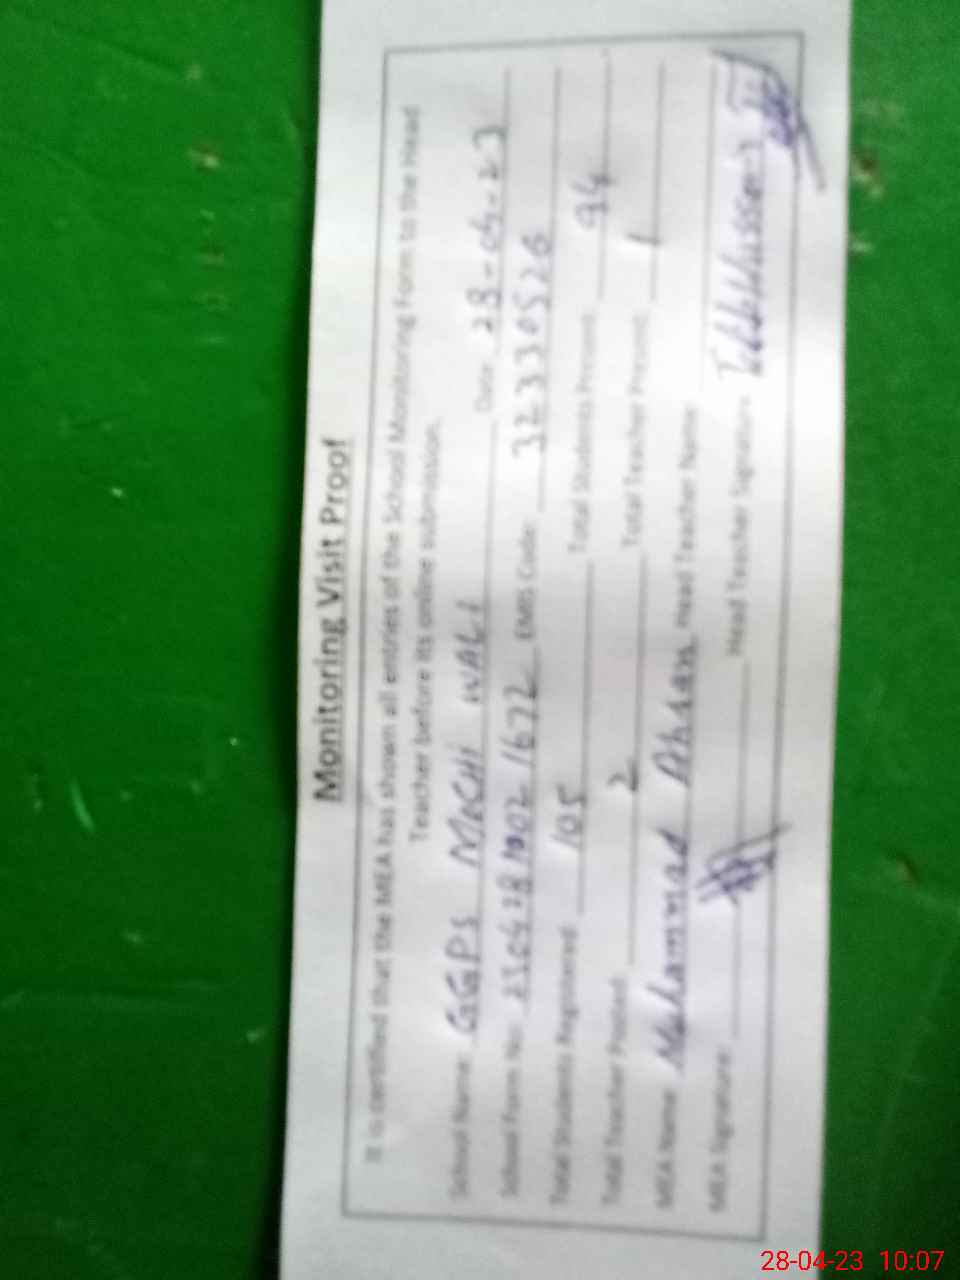 Monitoring Visit Proof
It is certified that the MEA has shown all entries of the School Monitoring Form to the Head
Teacher before its online submission.
School Name: GGPS MOCHI WALI Date: 28-04-23
School Form No: 230428 1002 1672 EMIS Code: 32330526
Total Students Registered: 105 Total Students Present: 94
Total Teacher Posted: 2 Total Teacher Present: 1
MEA Name: Muhammad Ahsan Head Teacher Name:
MEA Signature: Head Teacher Signature
28-04-23 10:07